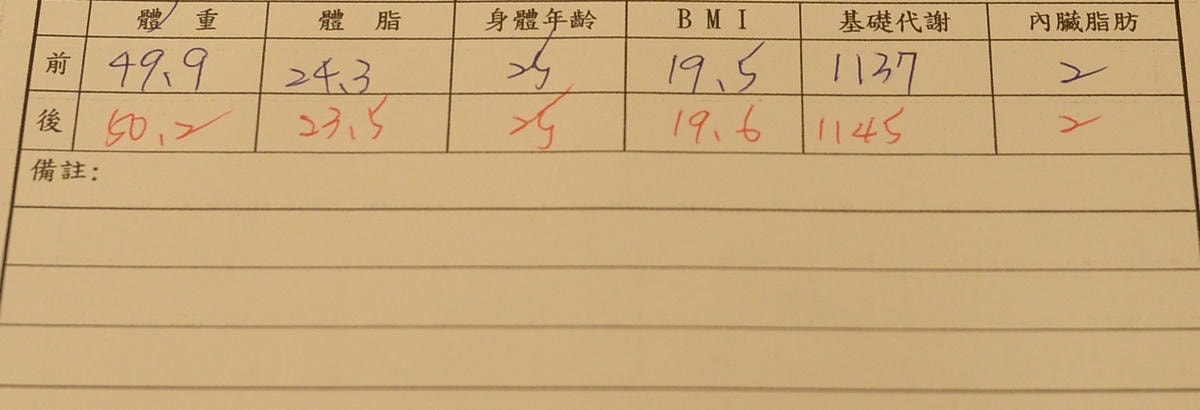 體重 體脂 身體年齡 BMI 基礎代謝 內臟脂肪
前 49.9 24.3 25 19.5 1137 2
後 50.2 23.5 25 19.6 1145 2
備註: